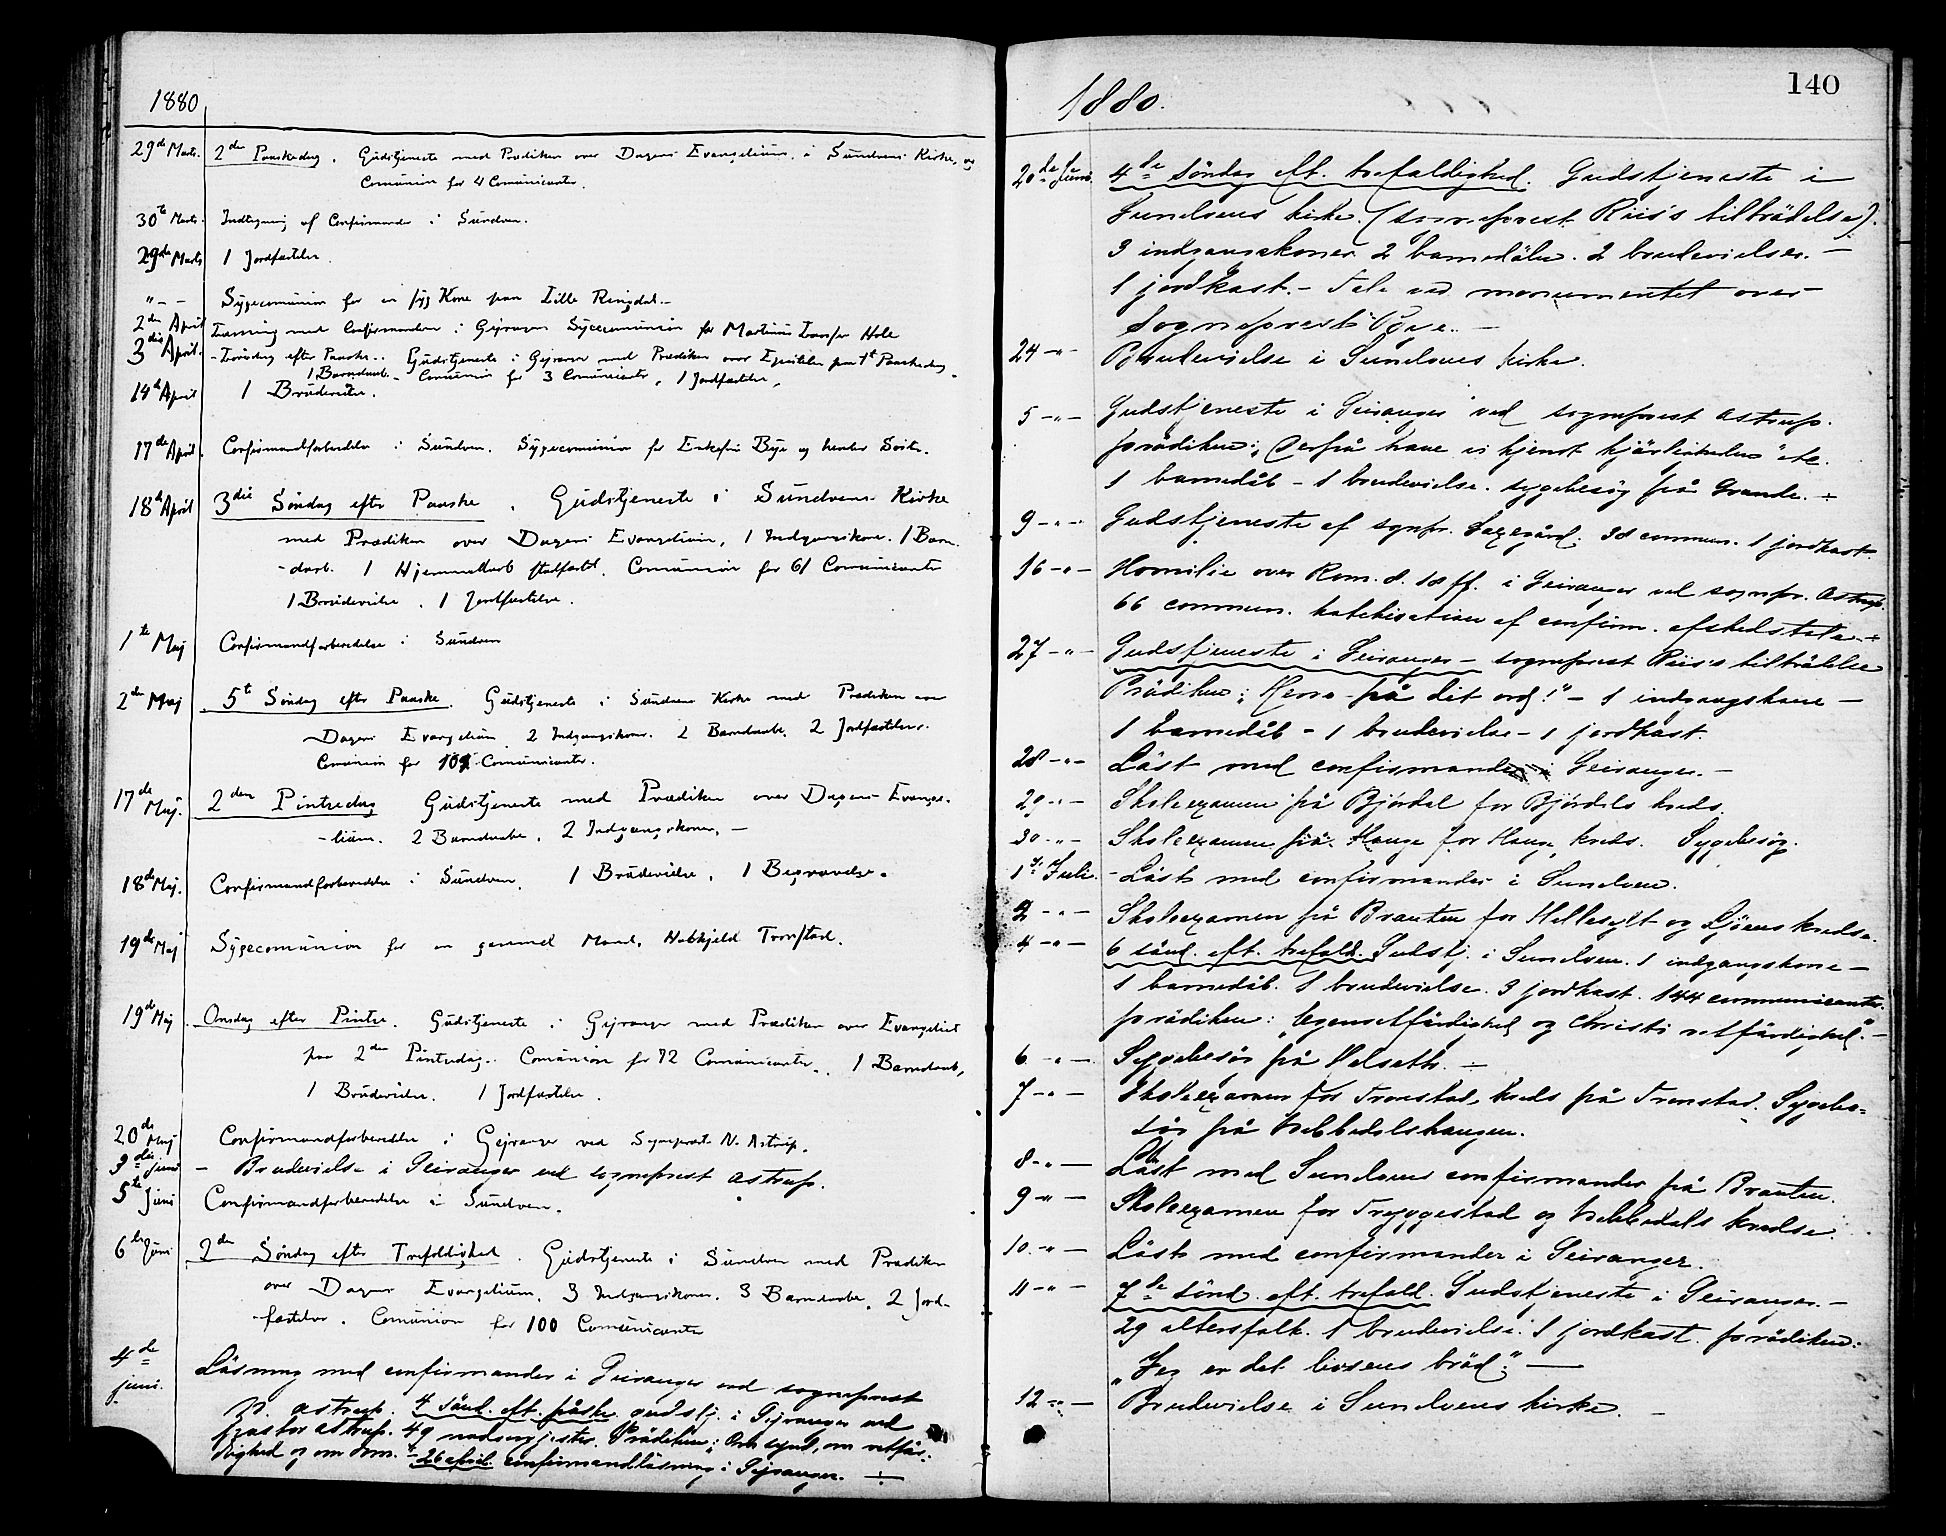 1880
29de Marts. 2den Paaskedag. Gudstjeneste med Prædiken over Dagens Evangelium, i Sundvens Kirke, og
Comunion for 4 Comunicanter.
30te Marts. Indtegning af Confirmander i Sundven.
29de Marts 1 Jordfæstelse.
" - - Sygecomunion for en syg Kone paa Lille Ringdal.-
2den April Læsning med Confirmander i Gejranger Sygecomunion for Martinus Hole
3die April. - Søndag efter Paaske. Gudstjeneste i Gejranger med Prædiken over Epistelen paa 1st Paaskedag.
1 Barnedaab. - Comunion for 3 Comunicanter, 1 Jordfæstelse,
14de April 1 Brudevielse.
17de April. Confirmandforberedelse i Sundven. Sygecomunion for Enkefru Bye og hendes Søster.
18de April 3die Søndag efter Paaske. Gudstjeneste i Sundvens Kirke
med Prædiken over Dagens Evangelium, 1 Indgangskone. 1 Barne-
-daab. 1 Hjemmedaab stadfæstet. Comunion for 61 Comunicanter
1 Brudevielse. 1 Jordfæstelse.
1te Maj Confirmandforberedelse i Sundven
2den Maj 5te Søndag efter Paaske. Gudstjeneste i Sundvens Kirke med Prædiken over
Dagens Evangelium 2 Indgangskoner. 2 Barnedaabe. 2 Jordfæstelser.
Comunion for Comunicanter.
17de Maj. 2den Pintsedag Gudstjeneste med Prædiken over Dagens Evange-
-lium. 2 Barnedaabe. 2 Indgangskoner, -
18de Maj. Confirmandforberedelse i Sundven, 1 Brudevielse, 1 Begravelse.
19de Maj Sygecomunion for en gammel Mand, Tronstad.
19de Maj Onsdag efter Pintse. Gudstjeneste i Gejranger med Prædiken over Evangeliet
paa 2den Pintsedag. Comunion for 72 Comunicanter. 1 Barnedaab,
1 Brudevielse. 1 Jordfæstelse.
20de Maj Confirmandforberedelse i Gejranger ved Sognepræst N. Astrup.
3die juni - Brudevielse i Geiranger ved sogneprest Astrup.
5te Juni Confirmandforberedelse i Sundven.
6te Juni 2den Søndag efter Trefoldighed. Gudstjeneste i Sundven med Prædiken
over Dagens Evangelium, 3 Indgangskoner. 3 Barnedaabe, 2 Jord-
-fæstelser. Comunion for 100 Comunicanter
4de juni. Läsning med confirmander i Geiranger ved sogneprest
N. Astrup. 4 sönd. eft. påske gudstj. i Gejranger ved
pastor Astrup. 49 nadvergjester. Prädiken: Om synd, om retfär-
dighed og om dom. - 26 april confirmandläsning i Gejranger. -
1880.
140
20de Juni. 4de söndag eft. trefoldighed. Gudstjeneste i
Sundvens kirke. (sogneprest Riis's tilträdelse).
3 indgangskoner. 2 barnedåbe. 2 brudevielser. -
1 jordkast. - Tale ved monumentet over
Sogneprest Bye. -
24 -"- Brudevielse i Sundvens kirke.
5 -"- Gudstjeneste i Geiranger ved sogneprest Astrup.
prädiken: "Derpå have vi kjendt kjärligheden" etc.
1 barnedåb - 1 brudevielse. sygebesög på Grande. -
9 -"- Gudstjeneste af sognpr. 38 commun. 1 jordkast.
16 -"- Homilie over Rom. 8. 18 ff. i Geiranger ved sognpr. Astrup.
66 commun. katekisation af confirm. afskedstale. -
27 -"- Gudstjeneste i Geiranger - sogneprest Riis's tilträdelse
Prädiken: "Herre - på dit ord!" - 1 indgangskone -
1 barnedåb - 1 brudevielse - 1 jordkast.
28 -"- Läst med confirmander i Geiranger. -
29 -"- Skoleexamen på Bjørdal for Bjørdals kreds.
30 -"- Skoleexamen på Hauge for Hauge kreds. Sygebesög.
1ste Juli. - Läst med confirmander i Sundven.
2 -"- Skoleexamen på Brauten for Hellesylt og Ljöens kredse.
4 -"- 6 sönd. eft. trefold. Gudstj. i Sundven. 1 indgangskone -
1 barnedåb. 1 brudevielse. 3 jordkast. 144 communicanter.
prädiken: "Egenretfärdighed og Christi retfärdighed". -
6 -"- Sygebesög på Helseth. -
7 -"- Skoleexamen for Tronstad kreds på Tronstad. Sygebe-
sög på Nebbedalshaugen.
8 -"- Läst med Sundvens confirmander på Brauten.
9 -"- Skoleexamen for Tryggestad og Nebbedals kredse.
10 -"- Läst med confirmander i Geiranger.
11 -"- 7de sönd. eft. trefold. Gudstjeneste i Geiranger. -
29 altersfolk. 1 brudevielse. 1 jordkast. prädiken:
"Jeg er det livsens bröd". -
12 -"- Brudevielse i Sundvens kirke. -